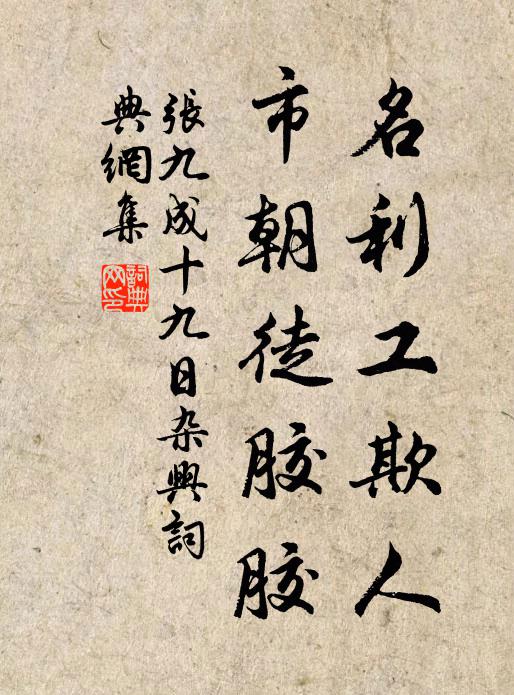 名利工欺人
市朝徒胶胶
張九成十九日杂興詞
典網集
詞典
网印